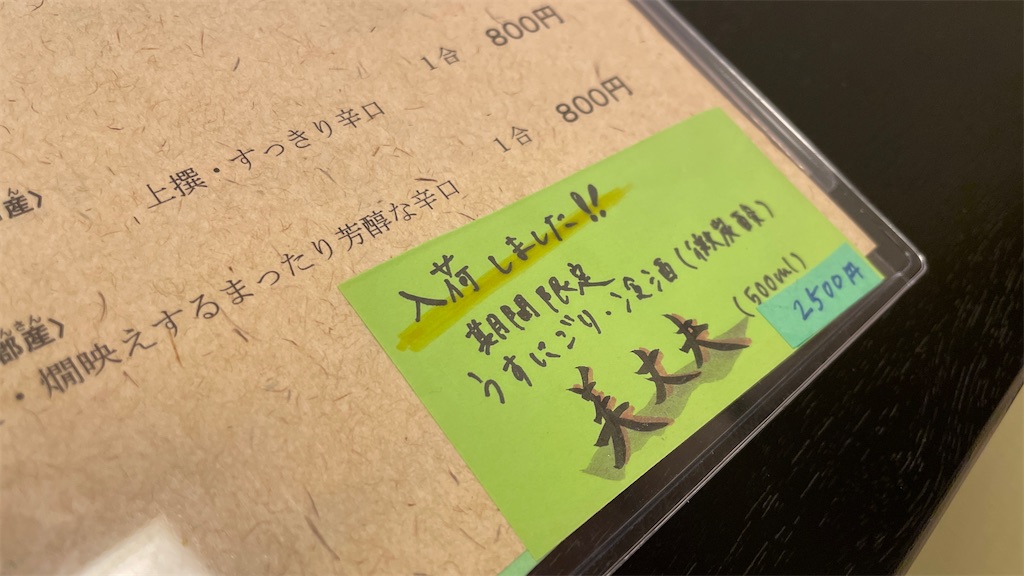 1合 800円
上撰・すっきり辛口
産〉
1合 800円
燗映えするまったり芳醇な辛口
都産〉
さん
入荷しました!!
期間限定
うすにごり・冷酒(微炭酸)
美丈夫
(500ml)
2500円